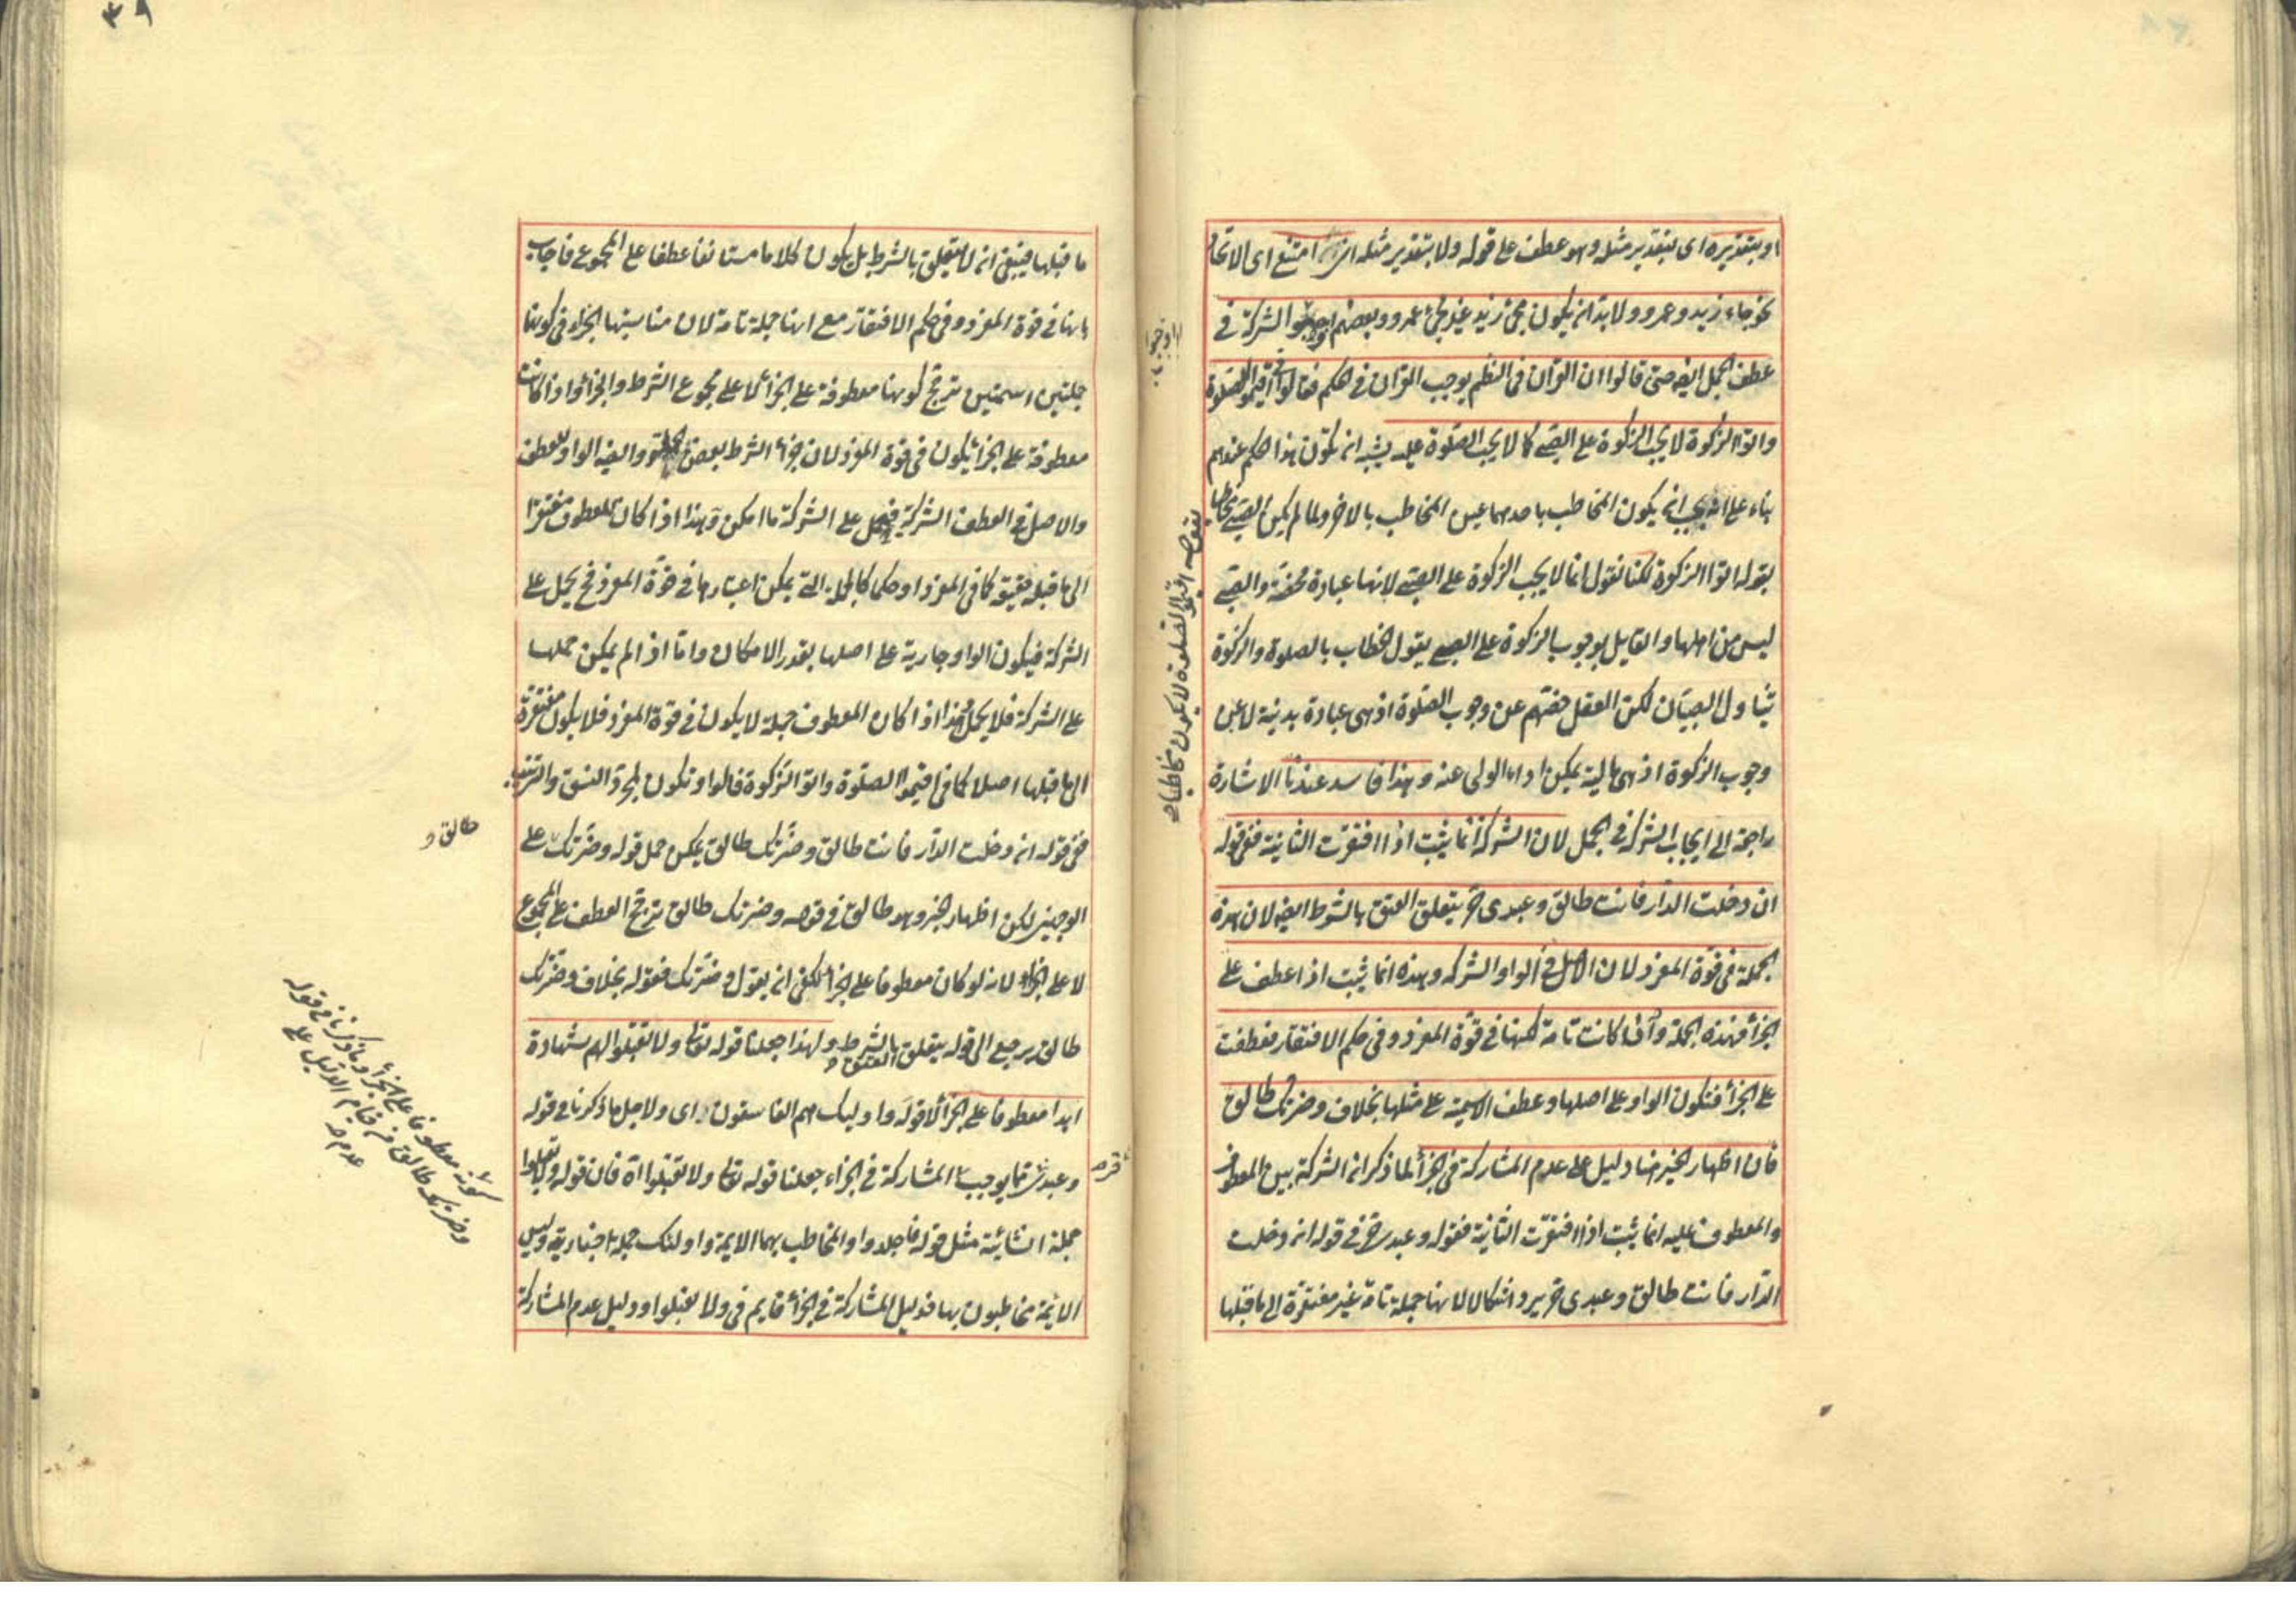 او بتقديره اى بتقدير مثله وهو عطف على قوله ولا بتقدير مثله ان امتنع اى الاتحاد
نحو جاء زيد وعمرو ولا بد ان يكون مجئ زيد غير مجئ عمرو وبعضهم اوجبوا الشركة فى
عطف الجمل ايضا حتى قالوا ان القران فى النظم يوجب القران فى الحكم فقالوا فى اقيموا الصلوة
واتوا الزكوة لا يجب الزكوة على الصبى كما لا يجب الصلوة عليه يشبه ان تكون هذا الحكم عندهم
بناء على انه يجب ان يكون المخاطب باحدهما عين المخاطب بالاخر ولما لم يكن الصبى مخاطبا
بقوله اتوا الزكوة لكنا نقول انما لا يجب الزكوة على الصبى لانها عبادة محضة والصبى
ليس من اهلها والقايل بوجوب الزكوة على الصبى يقول الخطاب بالصلوة والزكوة
يتناول الصبيان لكن العقل خصهم عن وجوب الصلوة اذ هى عبادة بدنية لا عن
وجوب الزكوة اذ هى مالية يمكن اداء الولى عنه وهذا فاسد عندنا الاشارة
راجعة الى ايجاب الشركة فى الجمل لان الشركة انما يثبت اذا افتقرت الثانية ففى قوله
ان دخلت الدار فانت طالق وعبدى حر يتعلق العتق بالشرط ايضا لان هذه
الجملة فى قوة المفرد لان الاصل فى الواو الشركة وهذه انما يثبت اذا عطف على
الجزأ فهذه الجملة وان كانت تامة لكنها فى قوة المفرد وفى حكم الافتقار فعطفت
على الجزأ فتكون الواو على اصلها وعطف الاسمية على مثلها بخلاف وضرتك طالق
فان اظهار الخبر هنا دليل على عدم المشاركة فى الجزأ لما ذكر ان الشركة بين المعطوف
والمعطوف عليه انما يثبت اذا افتقرت الثانية فقوله وعبدى حر فى قوله ان دخلت
الدار فانت طالق وعبدى حر يرد اشكالا لانها جملة تامة غير مفتقرة الى ما قبلها
اوجبوا
بقوله اقيموا الصلوة لا يكون مخاطبا
٣٩
ما قبلها فينبغى ان لا يتعلق بالشرط بل يكون كلاما مستانفا عطفا على المجموع فاجاب
بانها فى قوة المفرد وفى حكم الافتقار مع انها جملة تامة لان مناسبتها الجزاء فى كونهما
جملتين اسميتين ترجح كونها معطوفة على الجزأ لا على مجموع الشرط والجزأ واذا كانت
معطوفة على الجزأ يكون فى قوة المفرد لان جزأ الشرط بعض الجملة وايضا الواو للعطف
والاصل فى العطف الشركة فيحمل على الشركة ما امكن وهذا اذا كان المعطوف مفتقرا
الى ما قبله حقيقة كما فى المفرد او حكما كالجملة التى يمكن اعتبارها فى قوة المفرد فح يحمل على
الشركة فيكون الواو جارية على اصلها بقدر الامكان واما اذا لم يمكن حملها
على الشركة فلا يحمل وهذا اذا كان المعطوف جملة لا يكون فى قوة المفرد فلا يكون مفتقرة
الى ما قبلها اصلا كما فى اقيموا الصلوة واتوا الزكوة فالواو تكون لمجرد النسق والترتيب
ففى قوله ان دخلت الدار فانت طالق وضرتك طالق يمكن حمل قوله وضرتك على
الوجهين لكن اظهار الخبر وهو طالق فى قوله وضرتك طالق ترجح العطف على المجموع
لا على الجزاء لانه لو كان معطوفا على الجزأ لكفى ان يقول وضرتك فقوله بخلاف وضرتك
طالق يرجع الى قوله يتعلق العتق بالشرط ولهذا جعلنا قوله تعالى ولا تقبلوا لهم شهادة
ابدا معطوفا على الجزأ لا قوله واوليك هم الفاسقون اى ولاجل ما ذكرنا فى قوله
وعبدى حر مما يوجب المشاركة فى الجزاء جعلنا قوله تعالى ولا تقبلوا اه فان قوله ولا تقبلوا
جملة انشائية مثل قوله فاجلدوا والمخاطب بهما الايمة واولئك جملة اخبارية وليس
الائمة مخاطبون بها فدليل المشاركة فى الجزأ قايم فى ولا تقبلوا ودليل عدم المشاركة
طالق و
معطوفا على الجزأ وما ذكرنا فى قوله
وضرتك طالق من قيام الدليل على
عدم